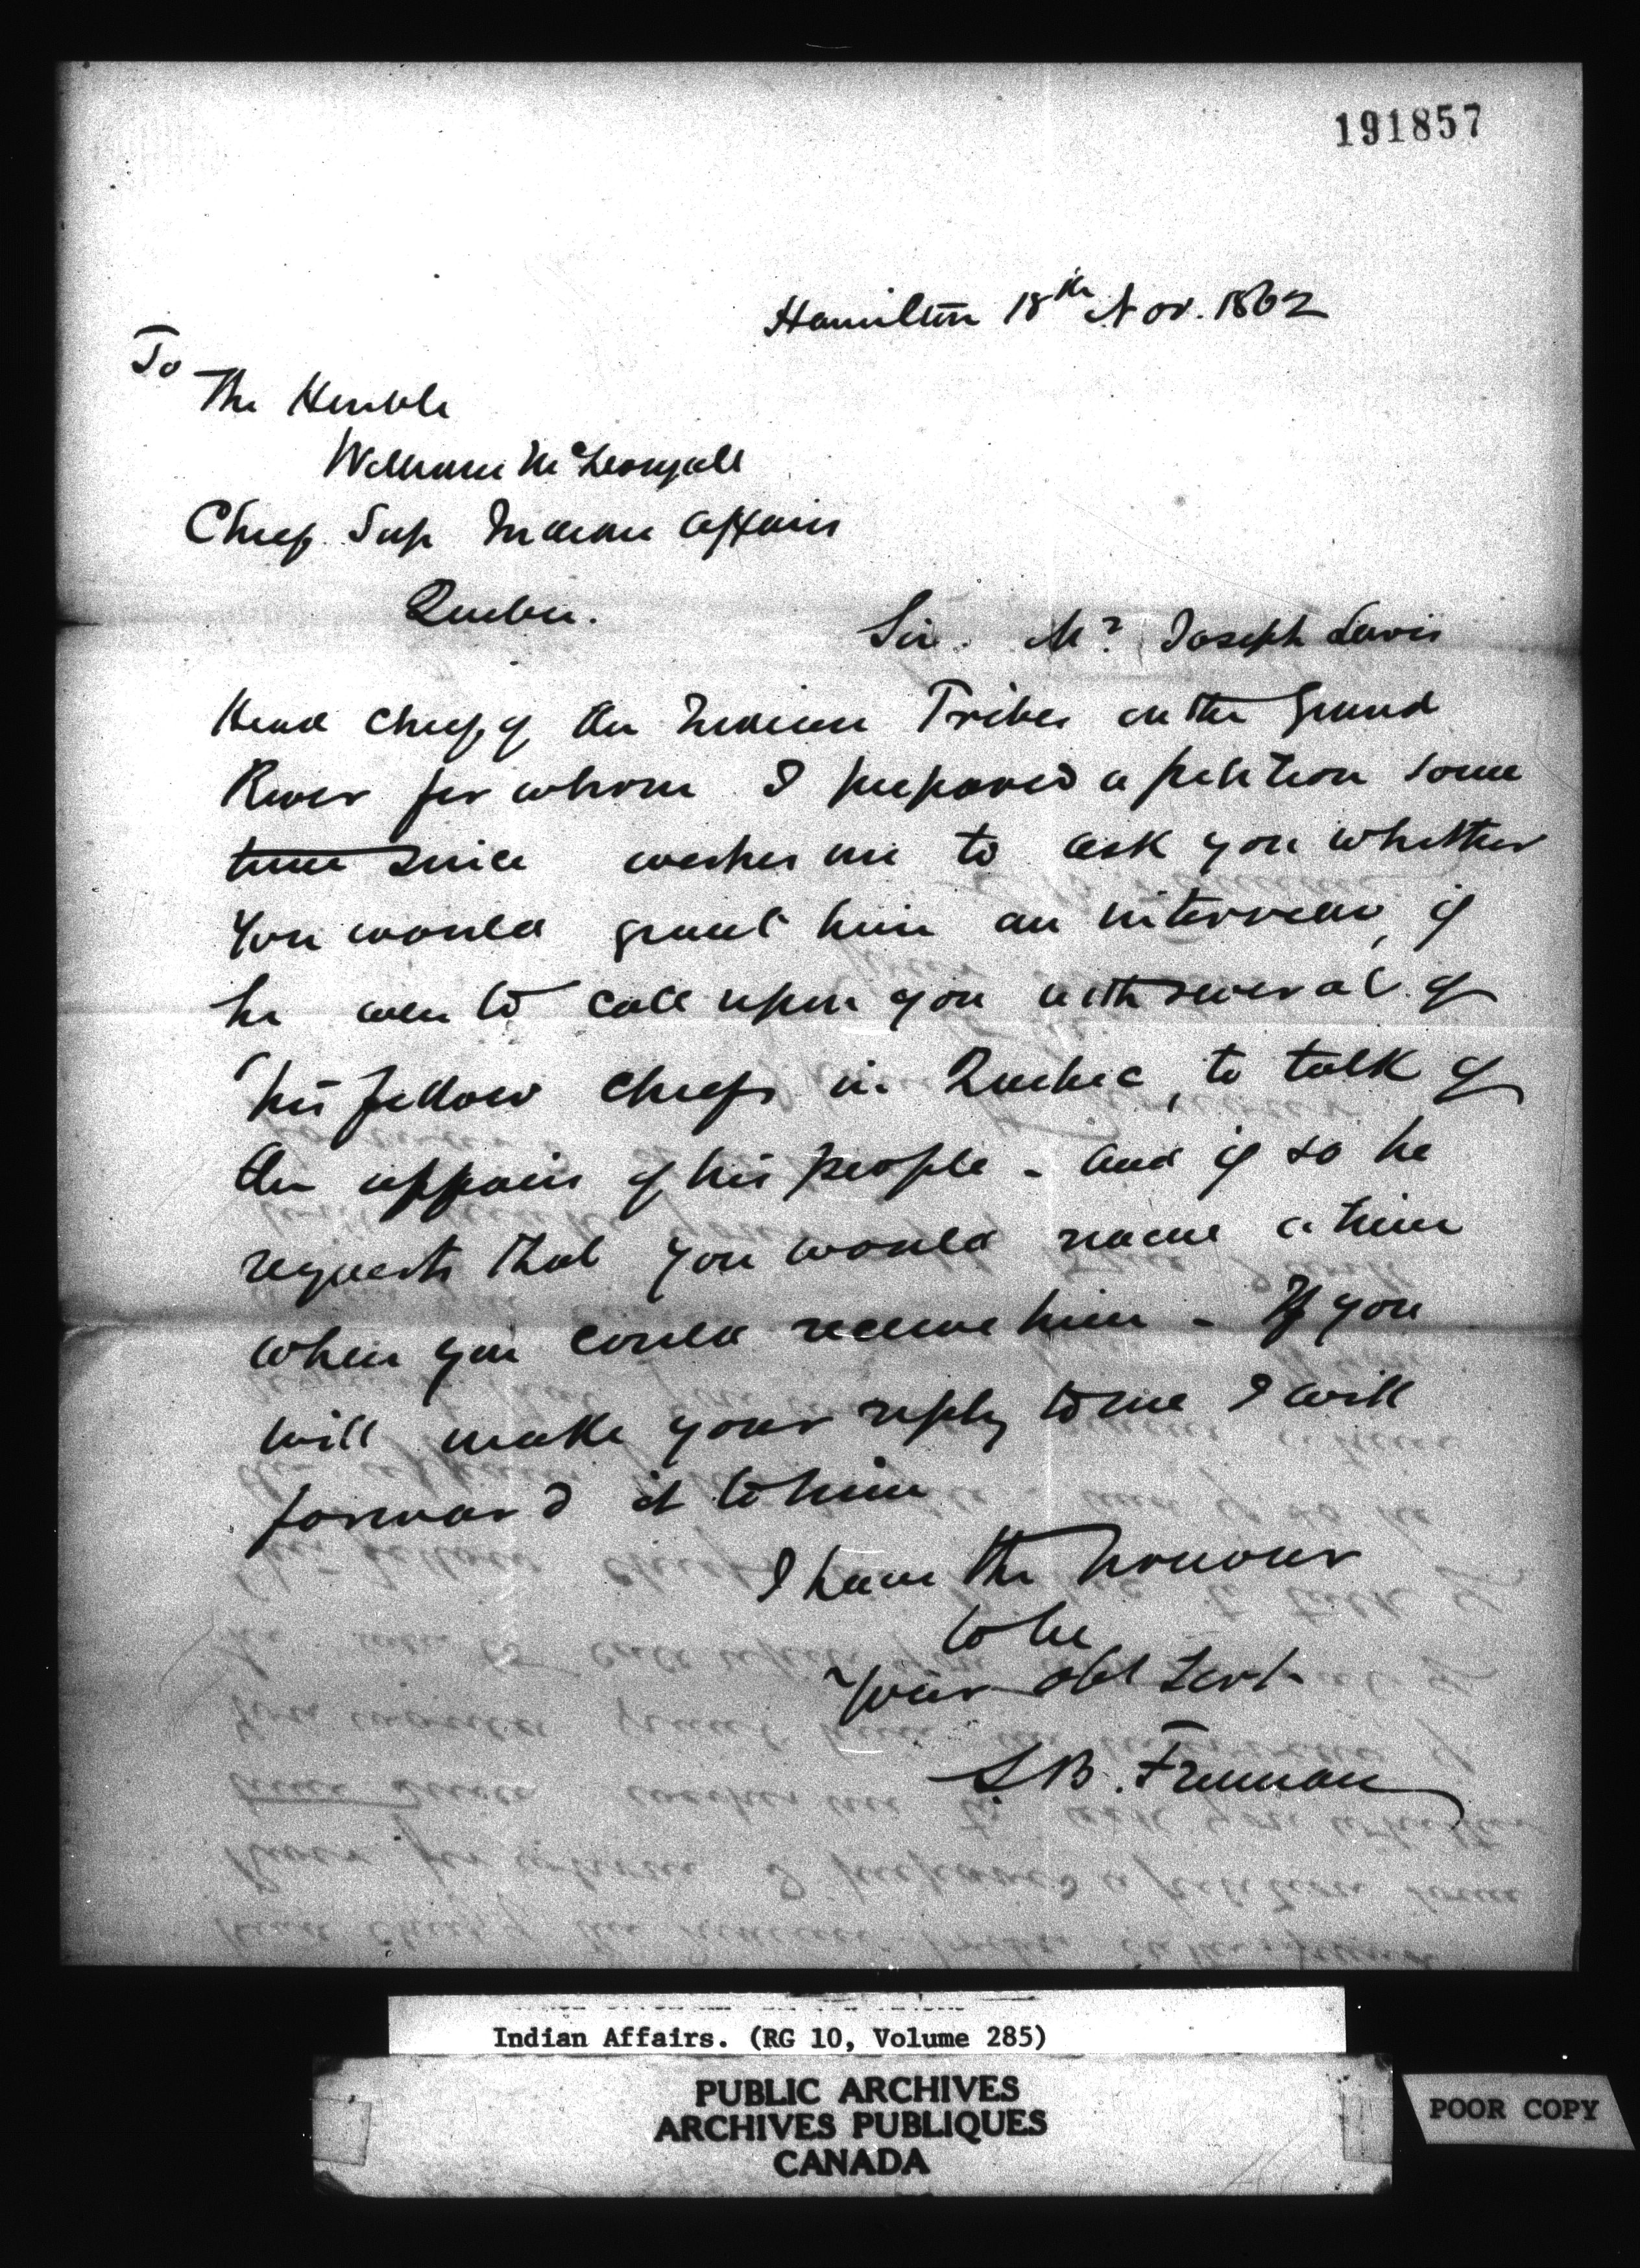 191857
Hamilton 18th Nov. 1862
To
The Honble
William McDougall
Chief Sup Indian Affairs
Quebec.
Sir. Mr Joseph Lewis
Head Chief of the Indian Tribes on the Grand
River for whom I prepared a petition some
time since wishes me to ask you whether
you would grant him an interview, if
he were to call upon you with several of
his fellow Chiefs in Quebec, to talk of
the affairs of his people - and if so he
requests that you would name a time
when you could receive him - If you
will make your reply to me I will
forward it to him
I have the honour
to be
Your obt Servt
S.B. Freeman
Indian Affairs. (RG 10, Volume 285)
PUBLIC ARCHIVES
ARCHIVES PUBLIQUES
CANADA
POOR COPY